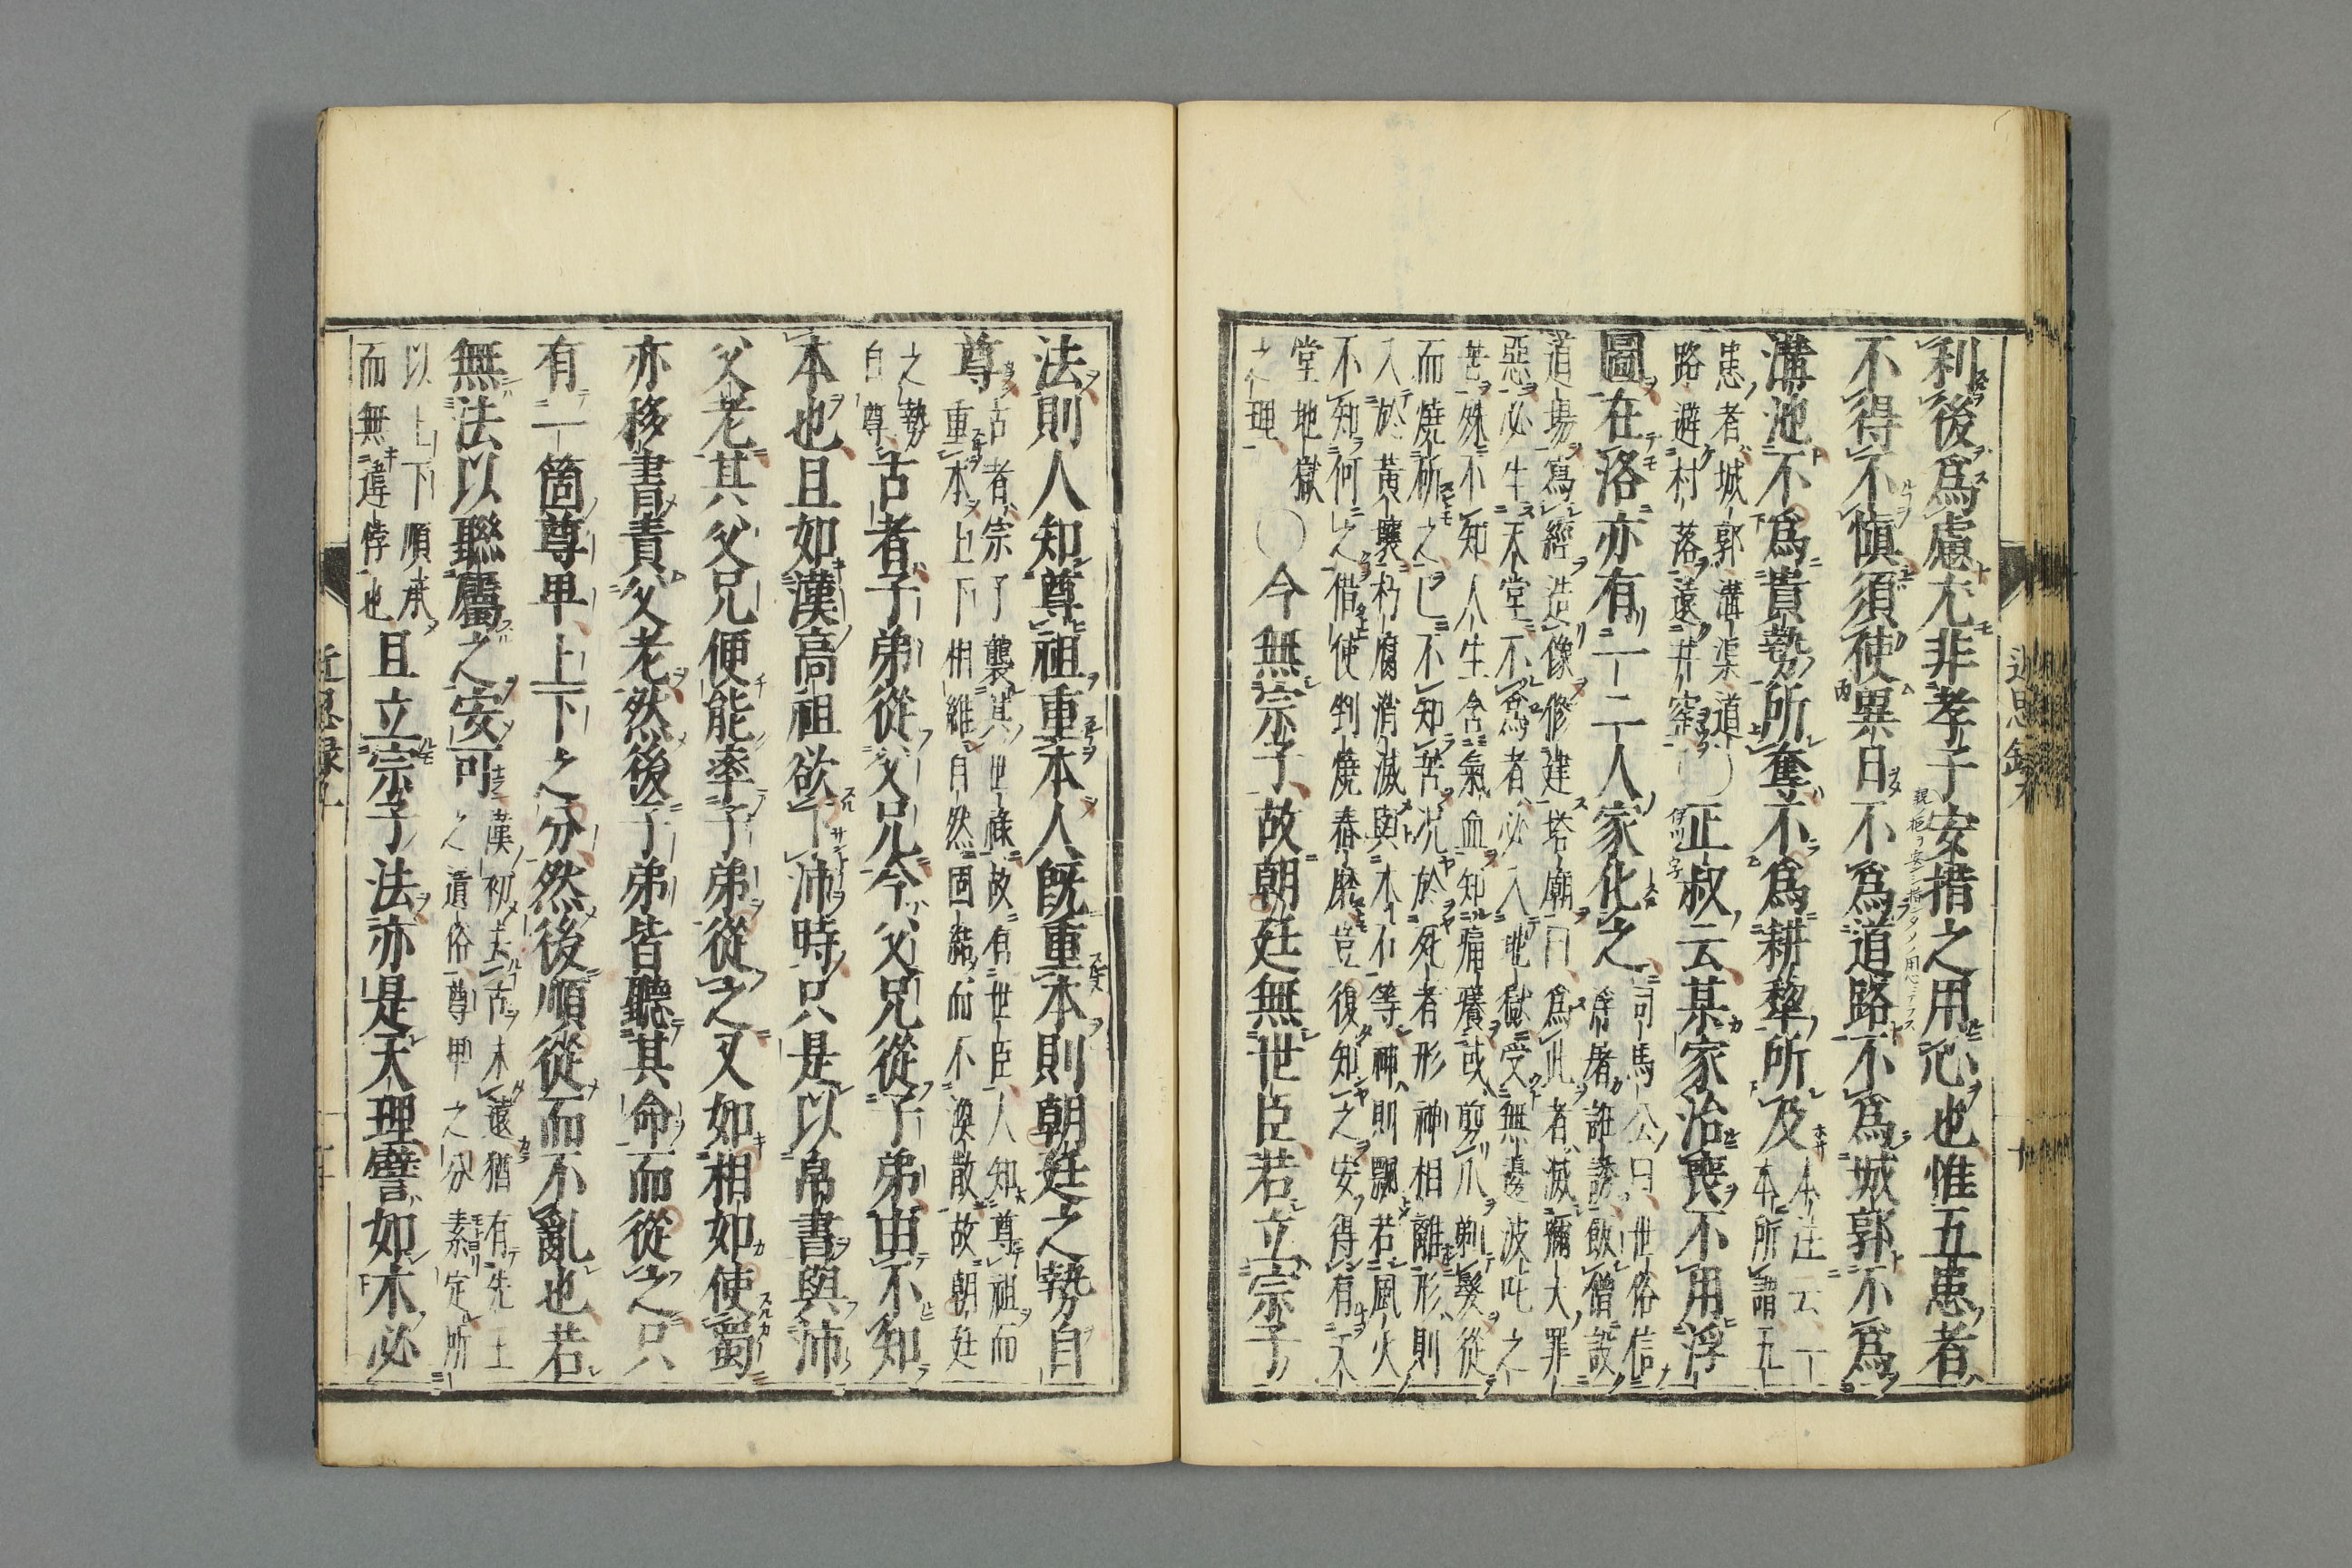 利後爲慮尤非孝子安措之用心也惟五患者
不得不愼須使異日不爲道路不爲城郭不爲
溝池不爲貴勢所奪不爲耕犂所及
本注云一
本所謂五
患者城郭溝渠道
路避村落遠井窑
〇正叔云某家治喪不用浮
圖在洛亦有一二人家化之
司馬公曰世俗信
浮屠誑誘飯僧設
道場寫經造像修建塔廟曰爲此者滅彌大罪
惡必生天堂不爲者必入地獄受無邊波吒之
苦殊不知人生含氣血知痛癢或剪爪剃髮從
而燒斫之已不知苦况於死者形神相離形則
入於黃壤朽腐消滅與木石等神則飄若風火
不知何之借使剉燒舂磨豈復知之安得有天
堂地獄
之理
〇今無宗子故朝廷無世臣若立宗子
近思錄九
十
法則人知尊祖重本人旣重本則朝廷之勢自
尊
古者宗子襲其世祿故有世臣人知尊祖而
重本上下相維自然固結而不渙散故朝廷
之勢
自尊
古者子弟從父兄今父兄從子弟由不知
本也且如漢高祖欲下沛時只是以帛書與沛
父老其父兄便能率子弟從之又如相如使蜀
亦移書責父老然後子弟皆聽其命而從之只
有一箇尊卑上下之分然後順從而不亂也若
無法以聯屬之安可
漢初去古未遠猶有先王
之遺俗尊卑之分素定所
以上下順承
而無違悖也
且立宗子法亦是天理譬如木必
近思錄九